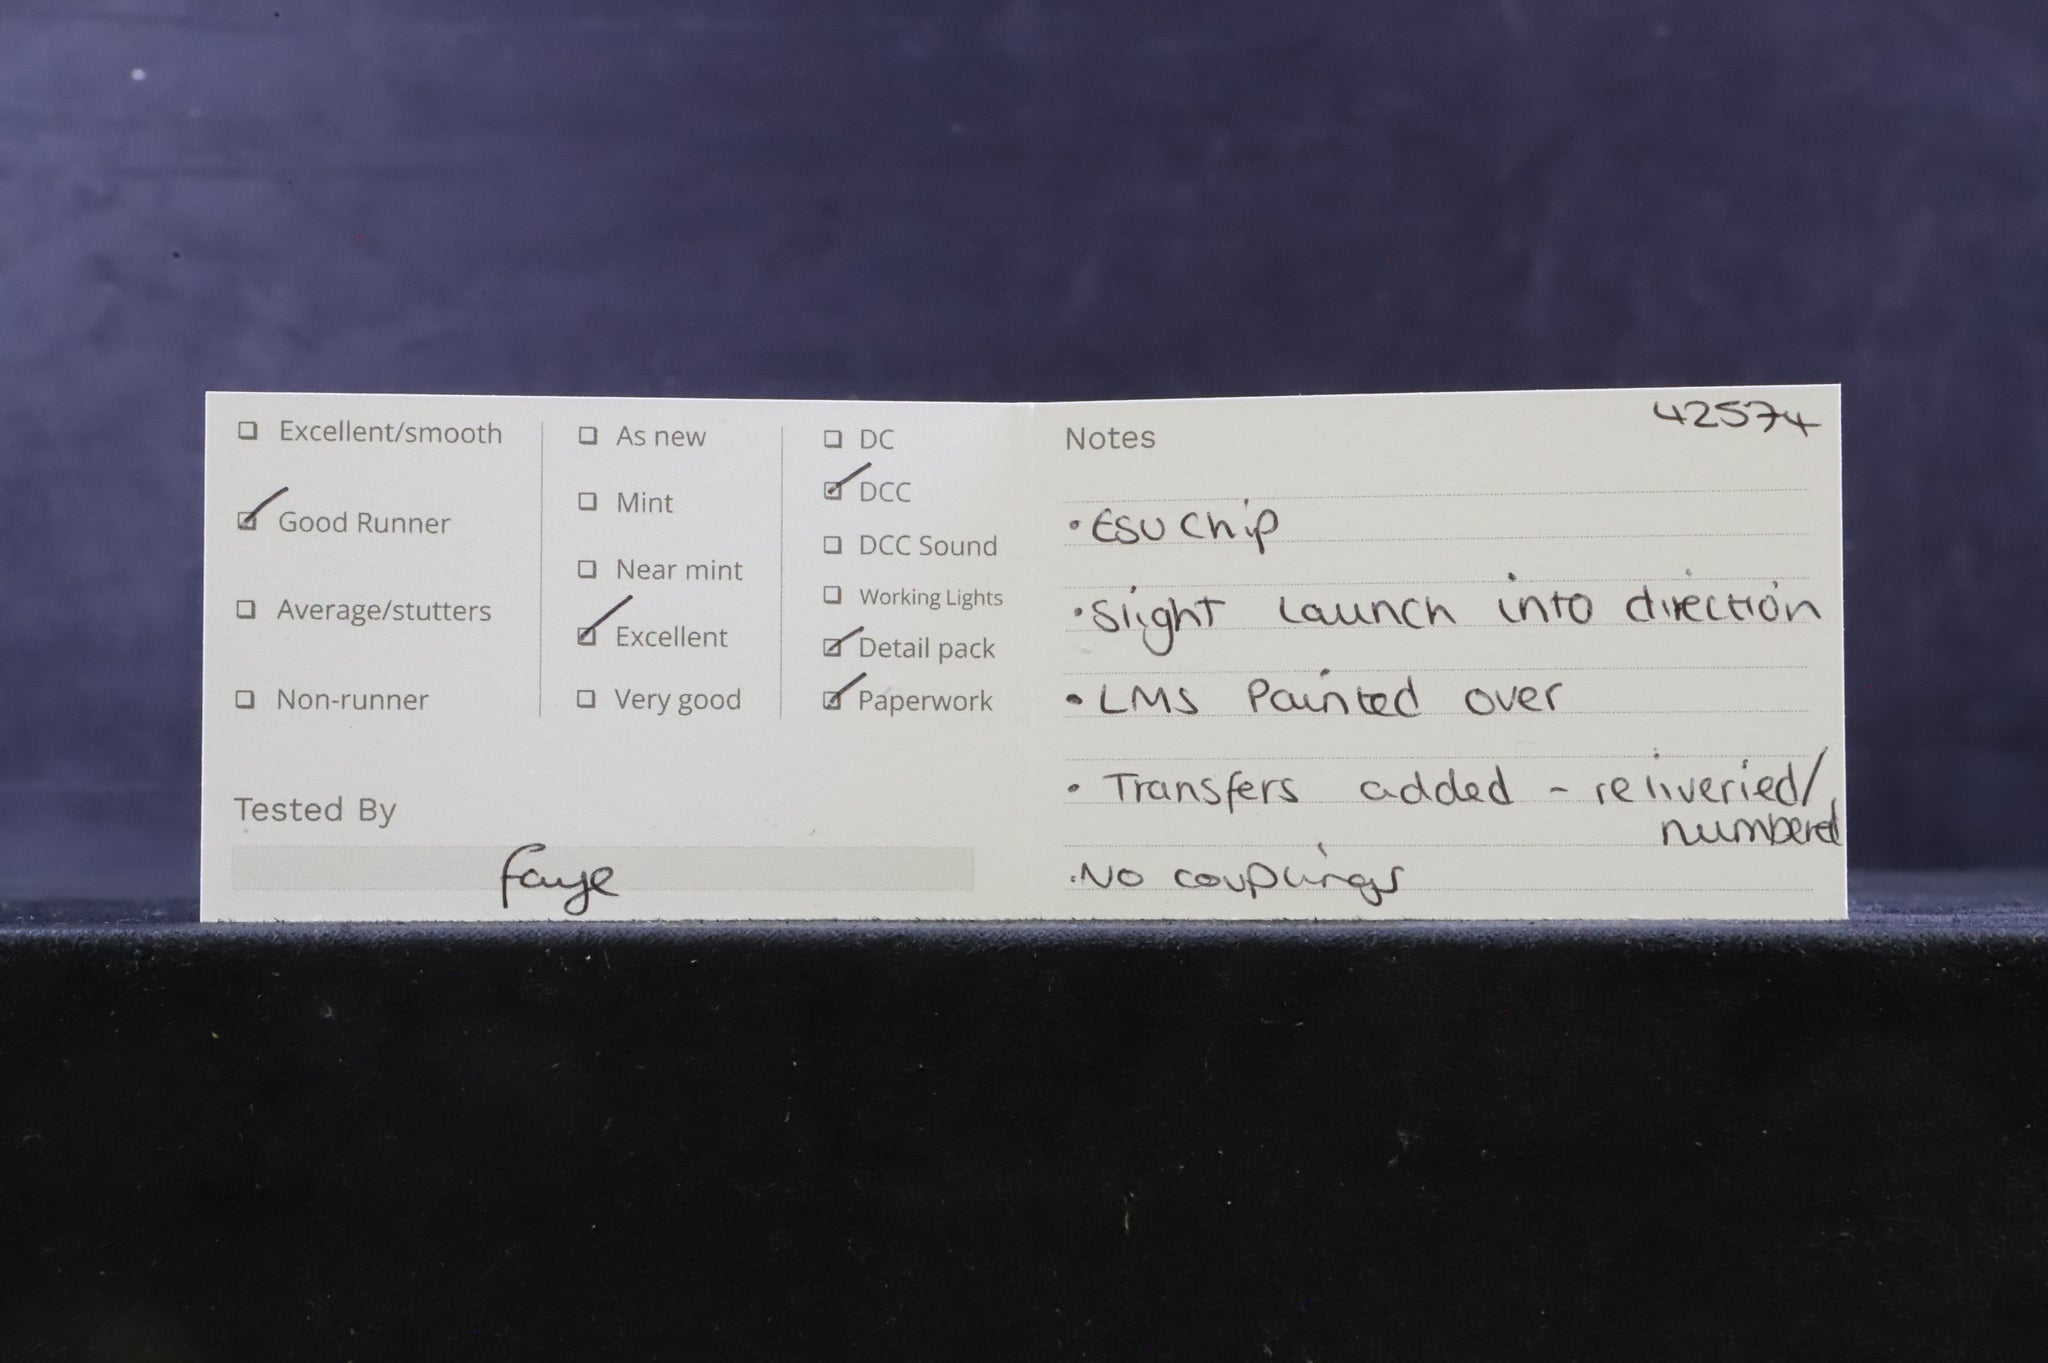 ☐ Excellent/smooth
☑ Good Runner
☐ Average/stutters
☐ Non-runner
☐ As new
☐ Mint
☐ Near mint
☑ Excellent
☐ Very good
☐ DC
☑ DCC
☐ DCC Sound
☐ Working Lights
☑ Detail pack
☑ Paperwork
Tested By
Faye
42574
Notes
• ESU Chip
• Slight launch into direction
• LMS Painted over
• Transfers added - reliveried/
numbered
• No couplings